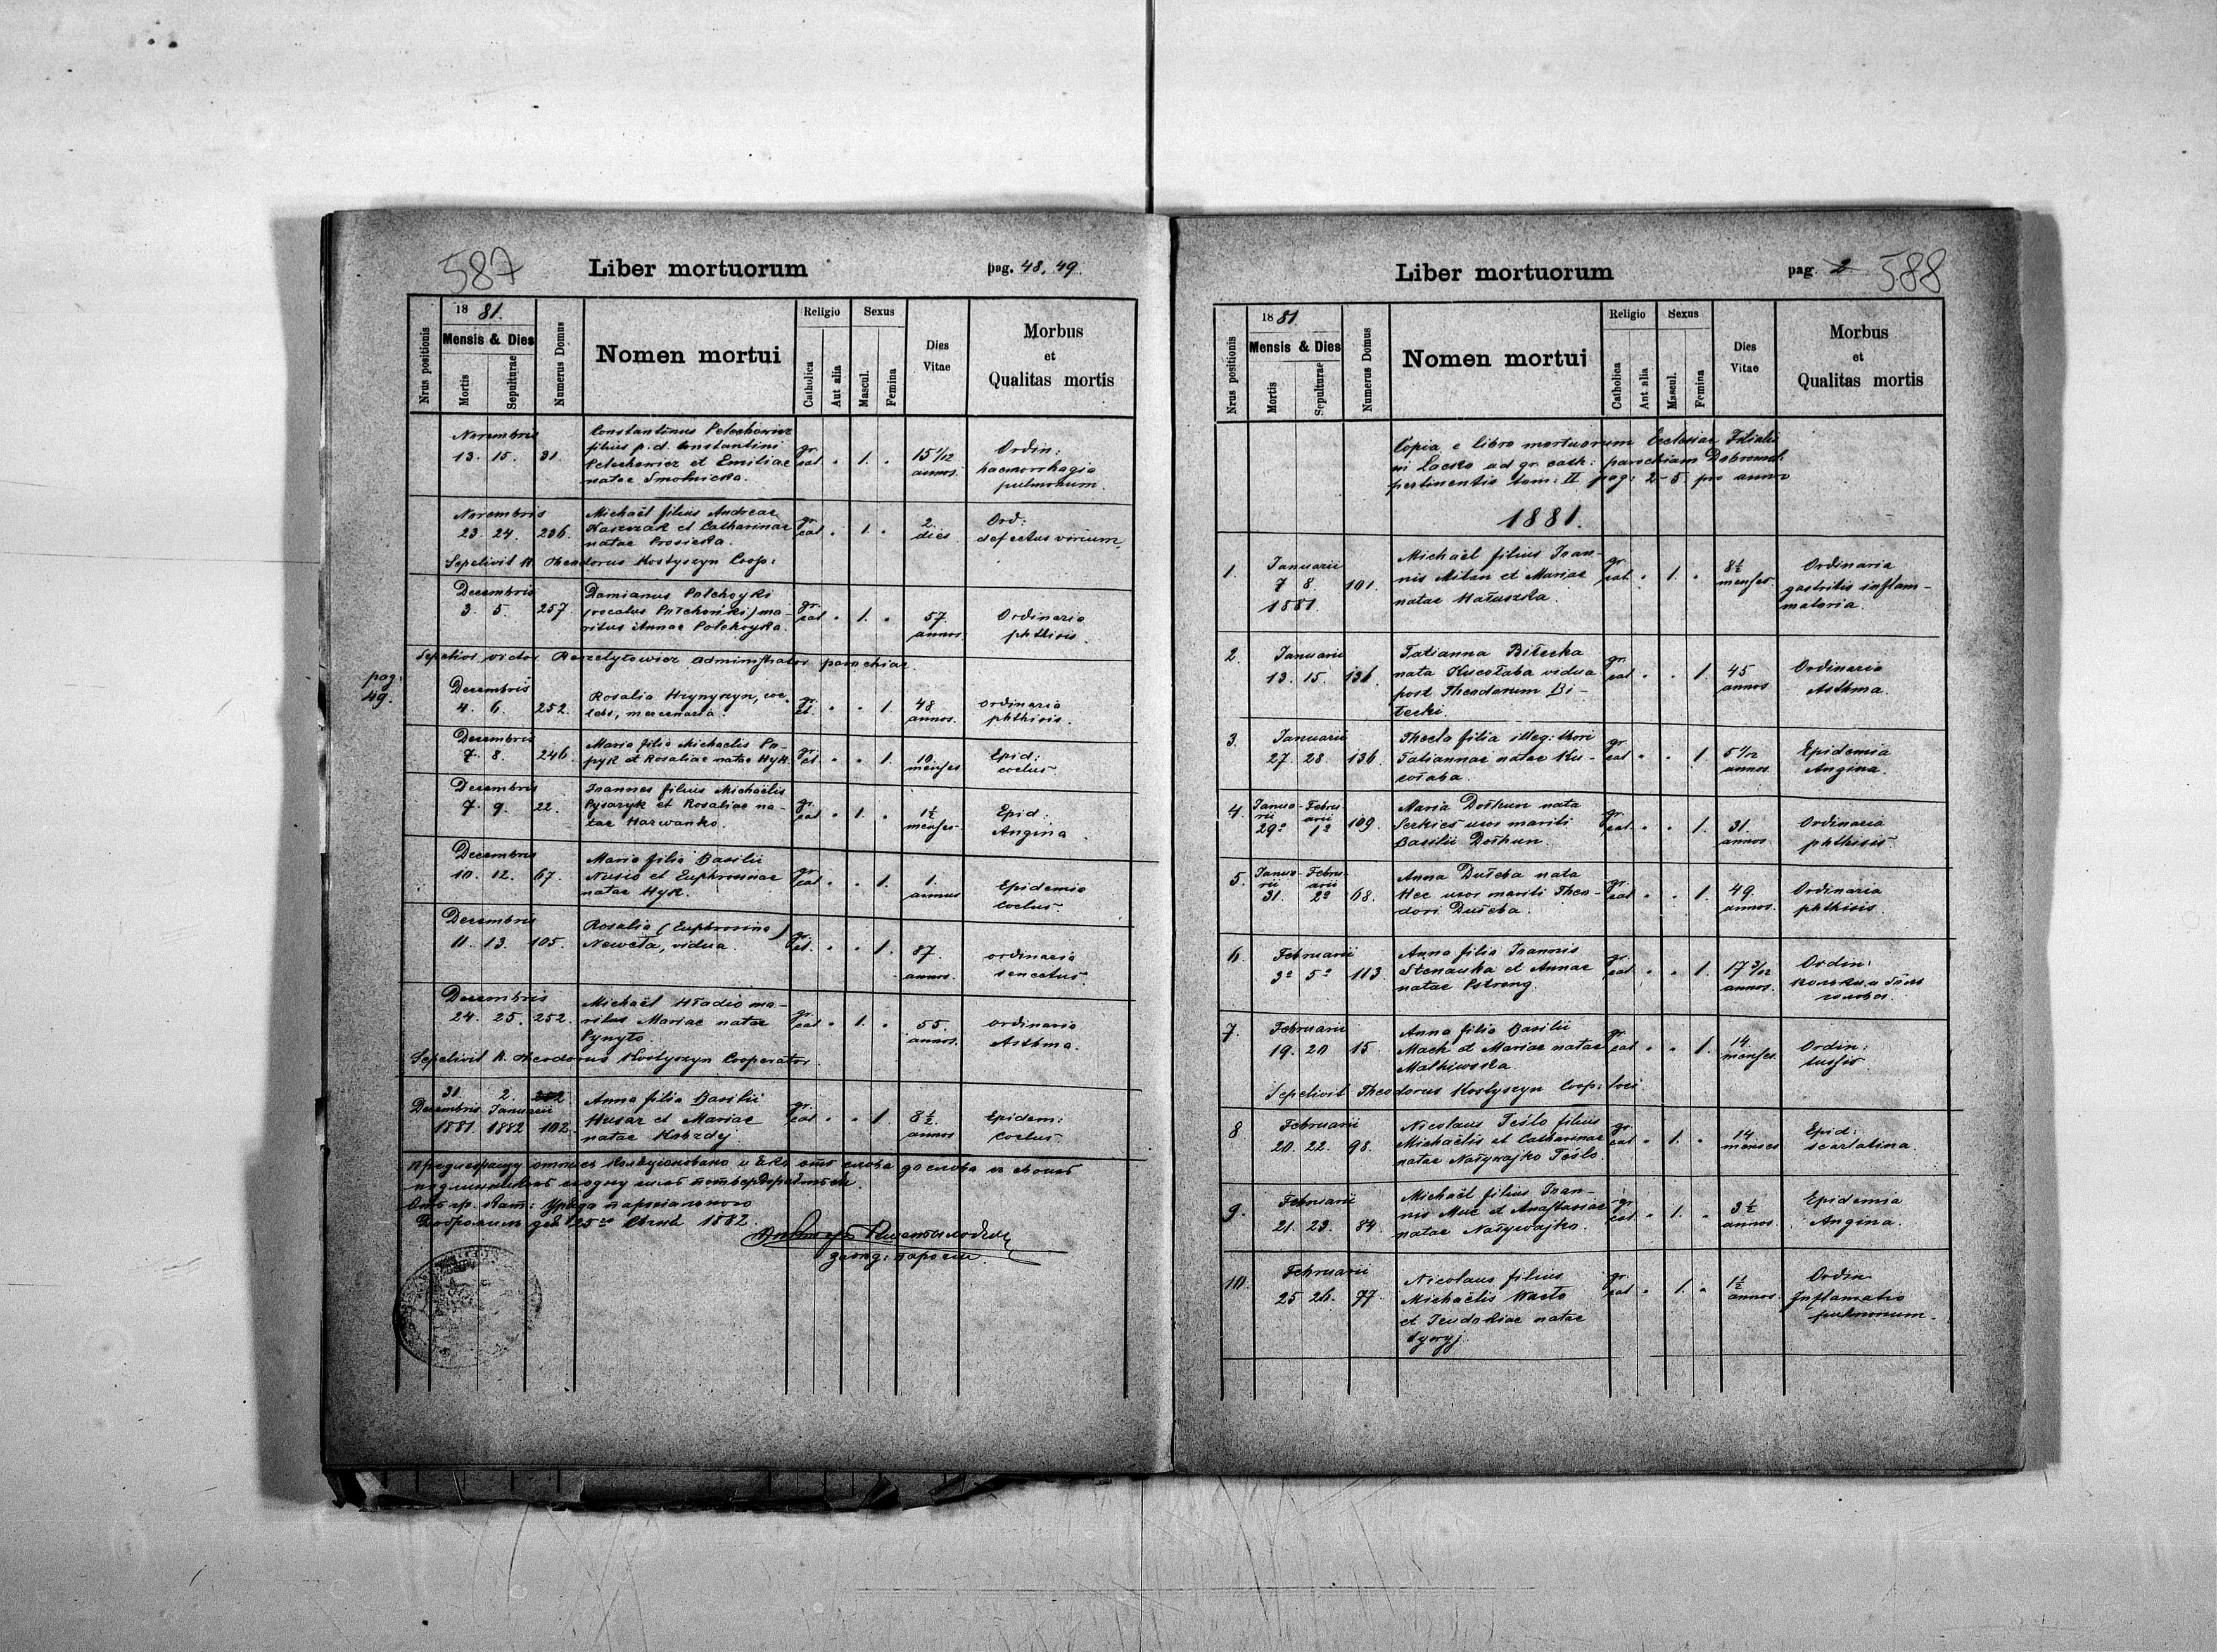 587
Liber mortuorum
pag. 48, 49.
1881.
Mensis & Dies
Nrus positionis
Mortis
Sepulturae
Numerus Domus
Nomen mortui
Religio
Catholica
Aut alia
Sexus
Mascul.
Femina
Dies
Vitae
Morbus
et
Qualitas mortis
Novembris
13. 15. 31.
Constantinus Pelechowicz
filius p. d. Constantini
Pelechowicz et Emiliae
natae Smolnicka.
gr. cat. " 1. "
15 1/12
annos.
Ordin:
haemorrhagia
pulmonum.
Novembris
23. 24. 236.
Michaël filius Andreae
Kaszczak et Catharinae
natae
gr. cat. " 1. "
2.
dies
Ord:
defectus virium.
Sepelivit R. Theodorus Kostyszyn Coop:
Decembris
3. 5. 257.
Damianus
(vocatus ma-
ritus Annae
gr. cat. " 1. "
57.
annos.
Ordinaria
phthisis.
administrator parochiae.
pag:
49.
Decembris
4. 6. 252.
Rosalia Hrynyszyn, coe-
lebs, mercenaria.
gr. ct. " " 1.
48
annos.
ordinaria
phthisis.
Decembris
7. 8. 246.
Maria filia Michaelis Pa-
pyk et Rosaliae natae Hyk.
gr. ct. " " 1.
10.
menses
Epid:
coctus.
Decembris
7. 9. 22.
Joannes filius Michaëlis
Pysaryk et Rosaliae na-
tae Harwanko.
gr. cat. " 1. "
1½
menses.
Epid:
Angina.
Decembris
10. 12. 67.
Maria filia Basilii
et Euphrosinae
natae Hyk.
gr. cat. " " 1.
1.
annus
Epidemia
coctus.
Decembris
11. 13. 105.
Rosalia (Euphrosina)
vidua.
gr. ct. " " 1.
87.
annos.
ordinaria
senectus.
Decembris
24. 25. 252.
Michaël Hładio ma-
ritus Mariae natae
Pynyło.
gr. cat. " 1. "
55.
annos.
ordinaria
Asthma.
Sepelivit R. Theodorus Kostyszyn Cooperator.
31. 2.
Decembris Januarii
1881. 1882 102.
Anna filia Basilii
Husar et Mariae
natae
gr. cat. " " 1.
8½.
annos
Epidem:
coctus
1882.
588
Liber mortuorum
pag. 2
1881.
Mensis & Dies
Nrus positionis
Mortis
Sepulturae
Numerus Domus
Nomen mortui
Religio
Catholica
Aut alia
Sexus
Mascul.
Femina
Dies
Vitae
Morbus
et
Qualitas mortis
Copia e libro mortuorum Ecclesiae Filialis
in Lacko ad gr. cath: parochiam Dobromil
pertinentis tom: II pag: 2-5 pro anno
1881.
1. Januarii
7 8. 101.
1881.
Michaël filius Joan-
nis Milan et Mariae
natae Hałuszka.
gr. cat. " 1. "
8½
menses.
Ordinaria
gastritis inflam-
matoria.
2. Januarii
13. 15. 136.
Tatianna Biłecka
nata Kucołaba vidua
post Theodorum Bi-
łecki.
gr. cat " " 1.
45
annos
Ordinaria
Asthma.
3. Januarii
27. 28. 136.
Thecla filia illeg: thori
Tatiannae natae Ku-
cołaba.
gr. cat " " 1.
5 1/12
annos.
Epidemia
Angina.
4. Janua-rii Febru-arii
29º 1º 109.
Maria Dołhun nata
Serkies uxor mariti
Basilii Dołhun.
gr. cat. " " 1.
31.
annos.
Ordinaria
phthisis
5. Janua-rii Febru-arii
31. 2º 68.
Anna Dułeba nata
Hec uxor mariti Theo-
dori Dułeba.
gr. cat " " 1.
49.
annos.
Ordinaria
phthisis.
6. Februarii
3º 5º 113.
Anna filia Joannis
et Annae
natae Pstrong.
gr. cat " " 1.
17 3/12
annos.
Ordin:
7. Februarii
19. 20 15.
Anna filia Basilii
Mach et Mariae natae
Mathiwska.
gr. cat " " 1.
14.
menses.
Ordin:
tussis
Sepelivit Theodorus Kostyszyn Coop: loci
8 Februarii
20. 22. 98.
Nicolaus Teślo filius
Michaëlis et Catharinae
natae Nażywajko Teślo
gr. cat " 1. "
14
menses
Epid:
scarlatina
9. Februarii
21. 23. 84
Michaël filius Joan-
nis Muc et Anastasiae
natae Nażywajko.
gr. cat " 1. "
3½
annos.
Epidemia
Angina.
10. Februarii
25 26. 77.
Nicolaus filius
Michaëlis
et Teudokiae natae
gr. cat " 1. "
1½
annos.
Ordin
Inflamatio
pulmonum.